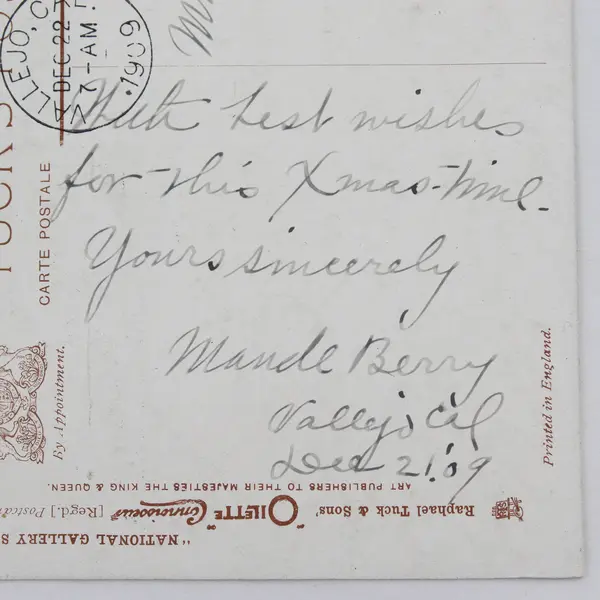 VALLEJO, C
DEC 22
7-AM
1909
M
With best wishes
for this Xmas-time.
Yours sincerely
Maude Berry
Vallejo Cal
Dec 21. '09
TUCK'S
CARTE POSTALE
By Appointment.
Printed in England.
ART PUBLISHERS TO THEIR MAJESTIES THE KING & QUEEN.
Raphael Tuck & Sons' "OILETTE" Connoisseur [Regd.] Postcard
"NATIONAL GALLERY S